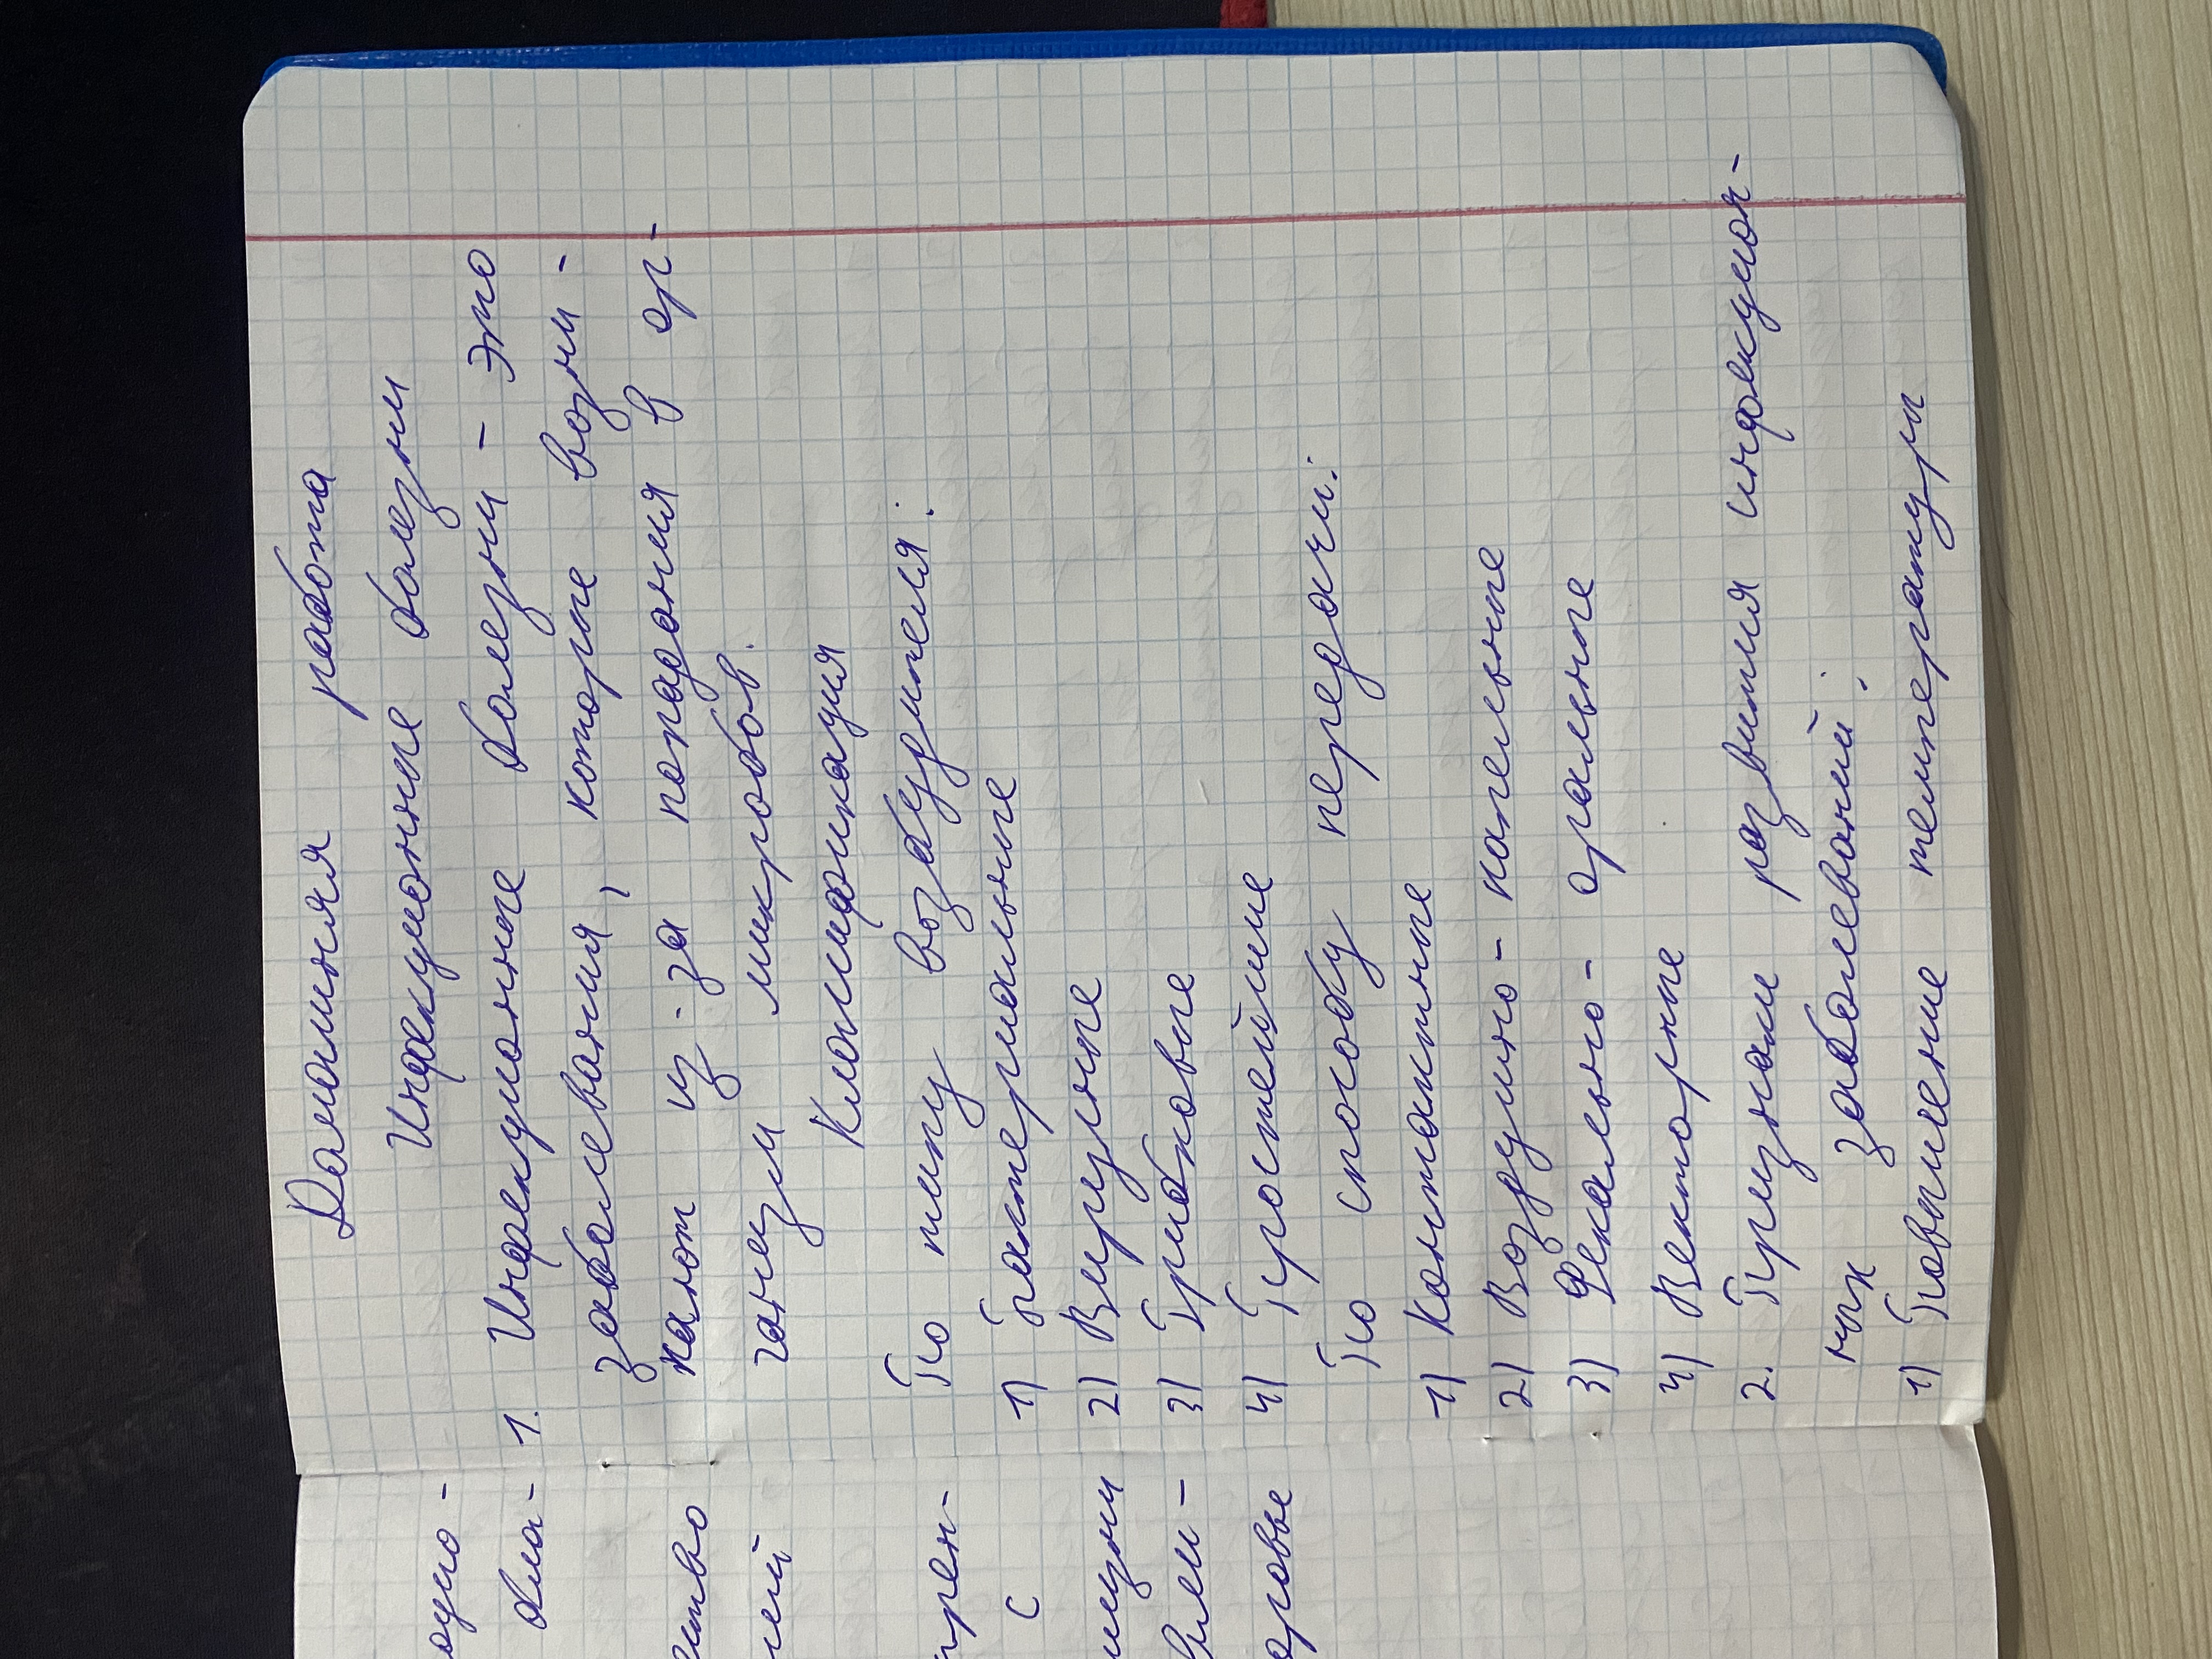 Домашняя работа
Инфекционные болезни
1. Инфекционные болезни – это
заболевания, которые возни-
кают из-за попадания в ор-
ганизм микробов.
Классификация
По типу возбудителя:
1) Бактериальные
2) Вирусные
3) Грибковые
4) Простейшие
По способу передачи:
1) Контактные
2) Воздушно-капельные
3) Фекально-оральные
4) Векторные
2. Признаки развития инфекцион-
ных заболеваний:
1) Повышение температуры